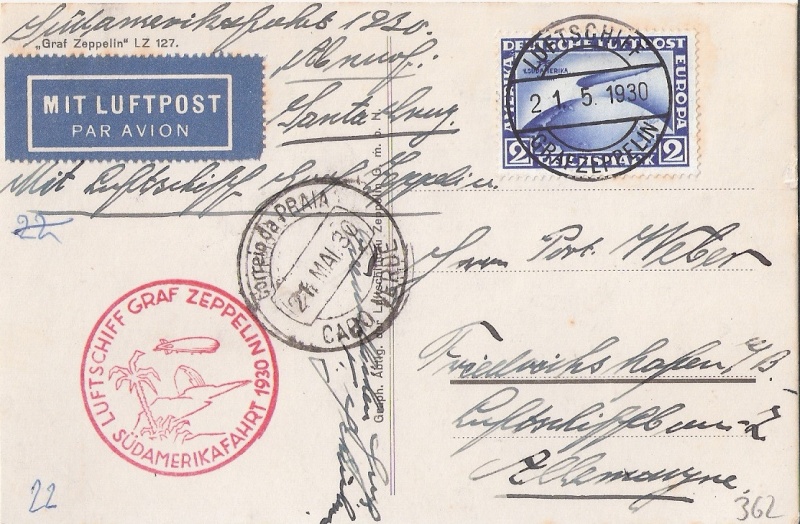 Südamerikafahrt 1930.
„Graf Zeppelin" LZ 127.
Abwurf:
Santa Cruz.
MIT LUFTPOST
PAR AVION
Mit Luftschiff Graf Zeppelin.
22
DEUTSCHE LUFTPOST
1.SÜDAMERIKA
EUROPA
2
2
LUFTSCHIFF
21.5.1930
GRAF ZEPPELIN
Correio da PRAIA
21 MAI. 30
CABO VERDE
Herrn Port. Weber
Friedrichshafen a/B.
Luftschiffbau-Z
Allemagne.
LUFTSCHIFF GRAF ZEPPELIN
SÜDAMERIKAFAHRT 1930
22
362